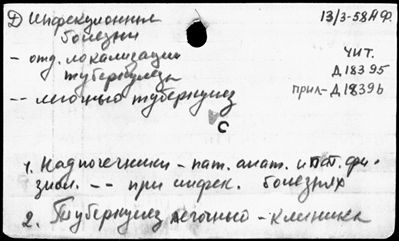 Д Инфекционные
болезни
- отд. локализации
туберкулеза
-- легочный туберкулез
13/3-58 А.Ф.
чит.
Д 18395
прил-Д 18396
с
1. Надпочечники - пат. анат. и пат. фи-
зиол. -- при инфек. болезнях
2. Туберкулез легочный - клиника